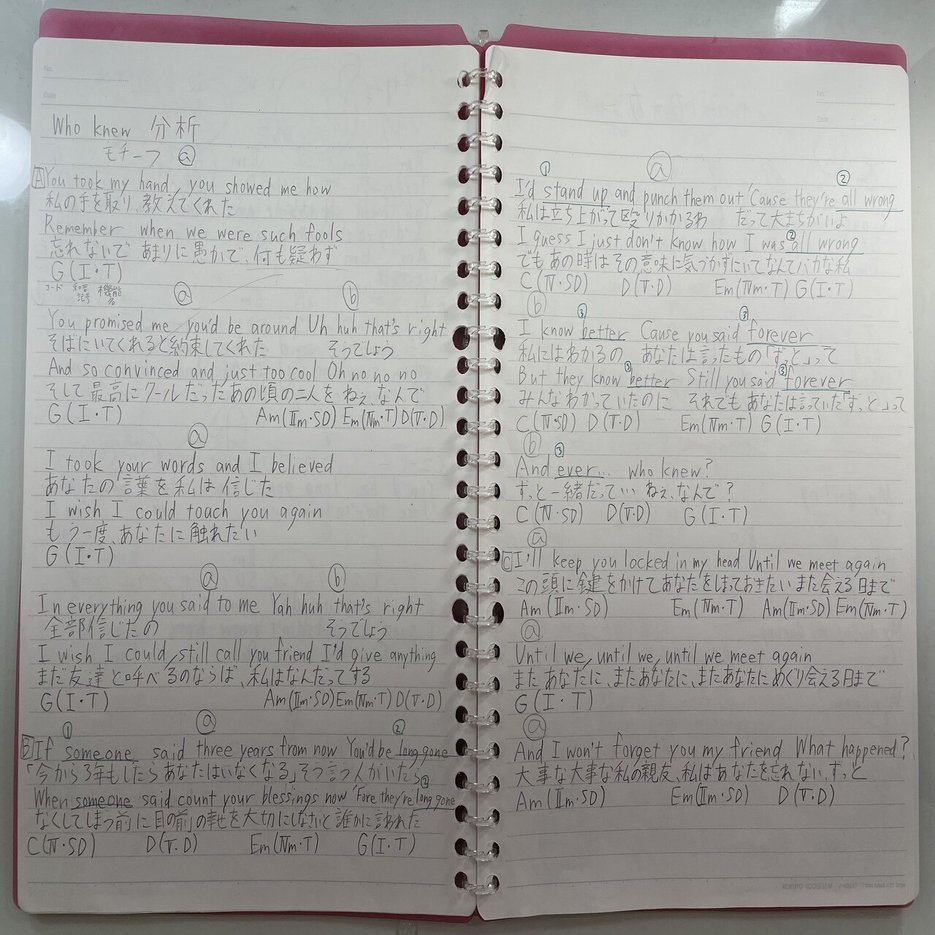 Who knew 分析
モチーフ ⓐ
A You took my hand, you showed me how
私の手を取り、教えてくれた
Remember when we were such fools
忘れないで あまりに愚かで、何も疑わず
G (I・T)
コード 和音記号 機能名
ⓐ ⓑ
You promised me you'd be around Uh huh that's right
そばにいてくれると約束してくれた そうでしょう
And so convinced and just too cool Oh no no no
そして最高にクールだったあの頃の二人を ねぇ、なんで
G (I・T) Am (IIm・SD) Em (IVm・T) D (V・D)
ⓐ
I took your words and I believed
あなたの言葉を私は信じた
I wish I could touch you again
もう一度、あなたに触れたい
G (I・T)
ⓐ ⓑ
In everything you said to me Yah huh that's right
全部信じたの そうでしょう
I wish I could still call you friend I'd give anything
まだ友達と呼べるのならば、私はなんだってする
G (I・T) Am (IIm・SD) Em (IVm・T) D (V・D)
① ⓐ ②
B If someone said three years from now You'd be long gone
「今から3年もしたらあなたはいなくなる」そう言う人がいたら
②
When someone said count your blessings now 'Fore they're long gone
なくしてしまう前に目の前の幸せを大切にしなさいと誰かに言われた
C (IV・SD) D (V・D) Em (IVm・T) G (I・T)
① ⓐ ②
I'd stand up and punch them out 'Cause they're all wrong
私は立ち上がって殴りかかるわ だって大まちがいよ
②
I guess I just don't know how I was all wrong
でもあの時はその意味に気づかずにいてなんてバカな私
C (IV・SD) D (V・D) Em (IVm・T) G (I・T)
ⓑ ③ ③
I know better Cause you said forever
私にはわかるの あなたは言ったもの「ずっと」って
③ ③
But they know better Still you said forever
みんなわかっていたのに それでもあなたは言っていた「ずっと」って
C (IV・SD) D (V・D) Em (IVm・T) G (I・T)
ⓑ ③
And ever... who knew?
ずっと一緒だってい ねぇ、なんで？
C (IV・SD) D (V・D) G (I・T)
ⓐ
C I'll keep you locked in my head Until we meet again
この頭に鍵をかけてあなたをはっておきたい また会える日まで
Am (IIm・SD) Em (IVm・T) Am (IIm・SD) Em (IVm・T)
ⓐ
Until we, until we, until we meet again
またあなたに、またあなたに、またあなたにめぐり会える日まで
G (I・T)
ⓐ
And I won't forget you my friend What happened?
大事な大事な私の親友、私はあなたを忘れない、ずっと
Am (IIm・SD) Em (IIm・SD) D (V・D)